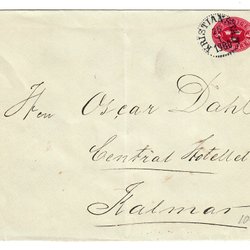 KRISTIAN
Herr Oscar Dahl
Central Hotellet
Kalmar